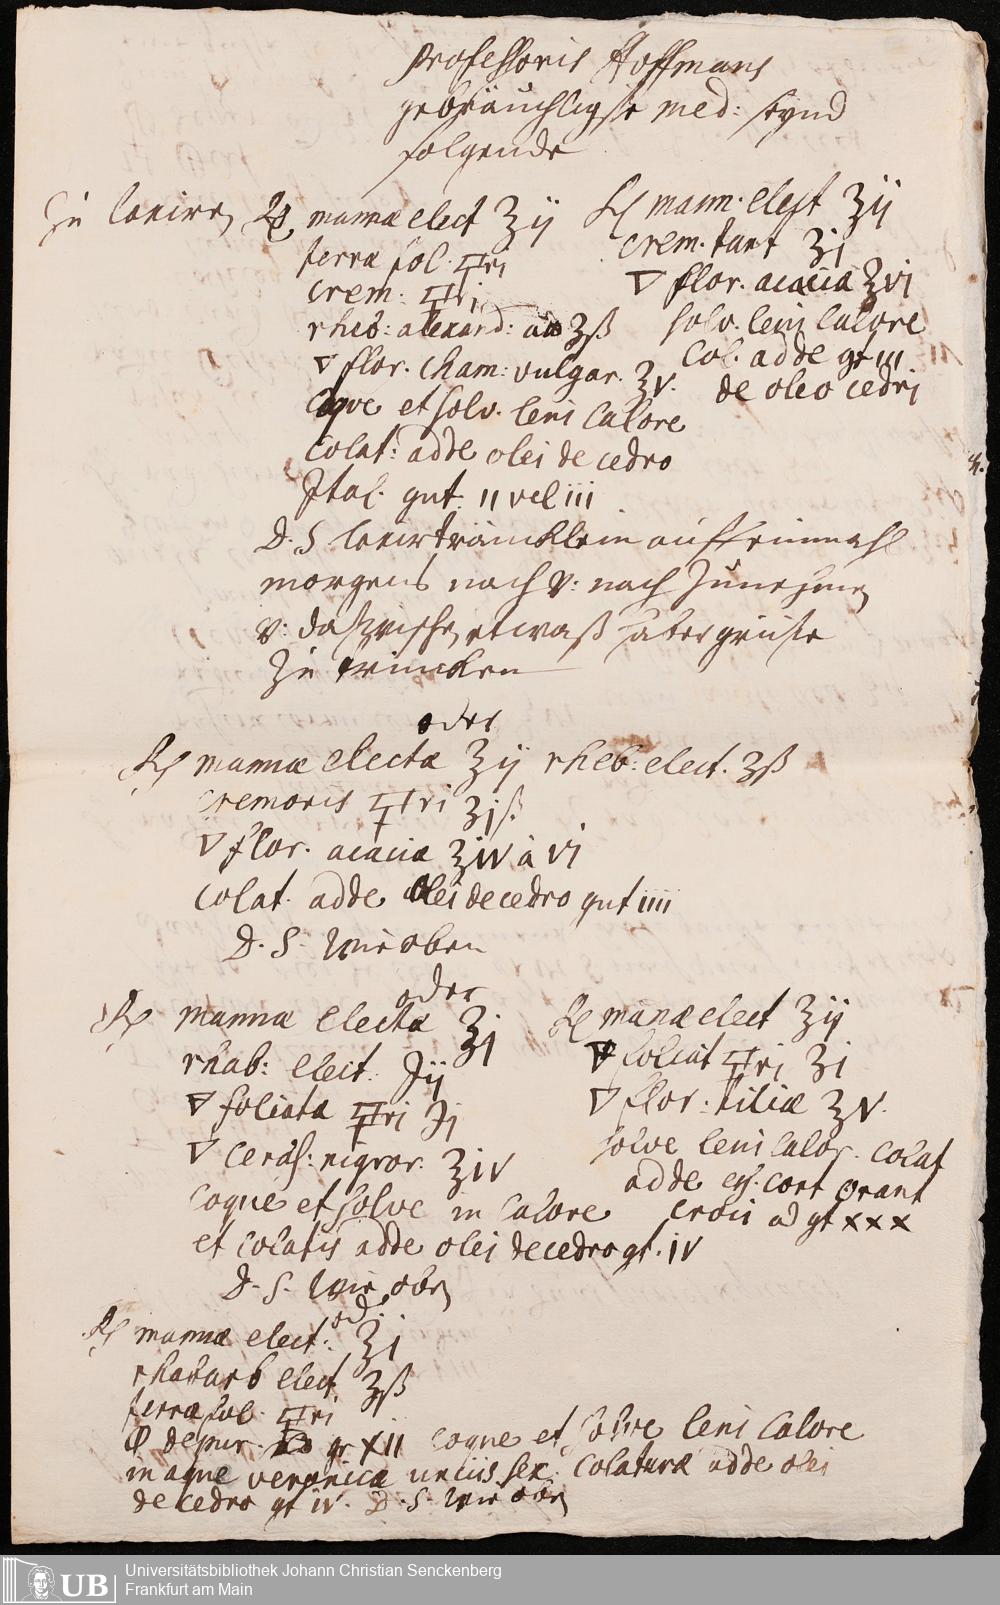 Professoris Hoffmans
gebräuchligste med: seynd
folgende
Zu laxiren ℞ mannæ elect ʒij
terræ fol. 🜿ri
crem: 🜿ri
rheb: alexand: aa ʒß
▽ flor. cham: vulgar. ʒv.
coque et solv. leni calore
colat: adde olei de cedro
Ital. gut. II vel iii
D. S laxirträncklein auff einmahl
morgens nach v: nach zu nehmen
v: dazwischen etwaß habergrütze
zu trincken
℞ mann. elect ʒij
crem. tart ʒj
▽ flor. acaciæ ʒvj
solv. leni calore
col. adde gt iii
de oleo cedri
oder
℞ mannæ electæ ʒij rheb: elect. ʒß
cremoris 🜿ri ʒjß.
▽ flor. acaciæ ʒiv à vj
colat. adde olei de cedro gut iiii
D. S. wie oben
oder
℞ mannæ electæ ʒj
rhab: elect. ℈ij
▽ foliatæ 🜿ri ℈j
▽ ceras: nigror. ʒiv
coque et solve in calore
et colatis adde olei de cedro gt. iv
D. S. wie oben
℞ manæ elect ʒij
▽ foliat 🜿ri ʒj
▽ flor. tiliæ ʒv.
solve leni calor. colat
adde ess. cort orant
croci ad gt xxx
od.
℞ mannæ elect: ʒj
rhabarb elect ʒß
terræ fol. 🜿ri
🜕 depur. gr XII coque et solve leni calore
in aque veronicæ unciis sex. colaturæ adde olei
de cedro gt iv. D. S. wie oben
UB Universitätsbibliothek Johann Christian Senckenberg
Frankfurt am Main